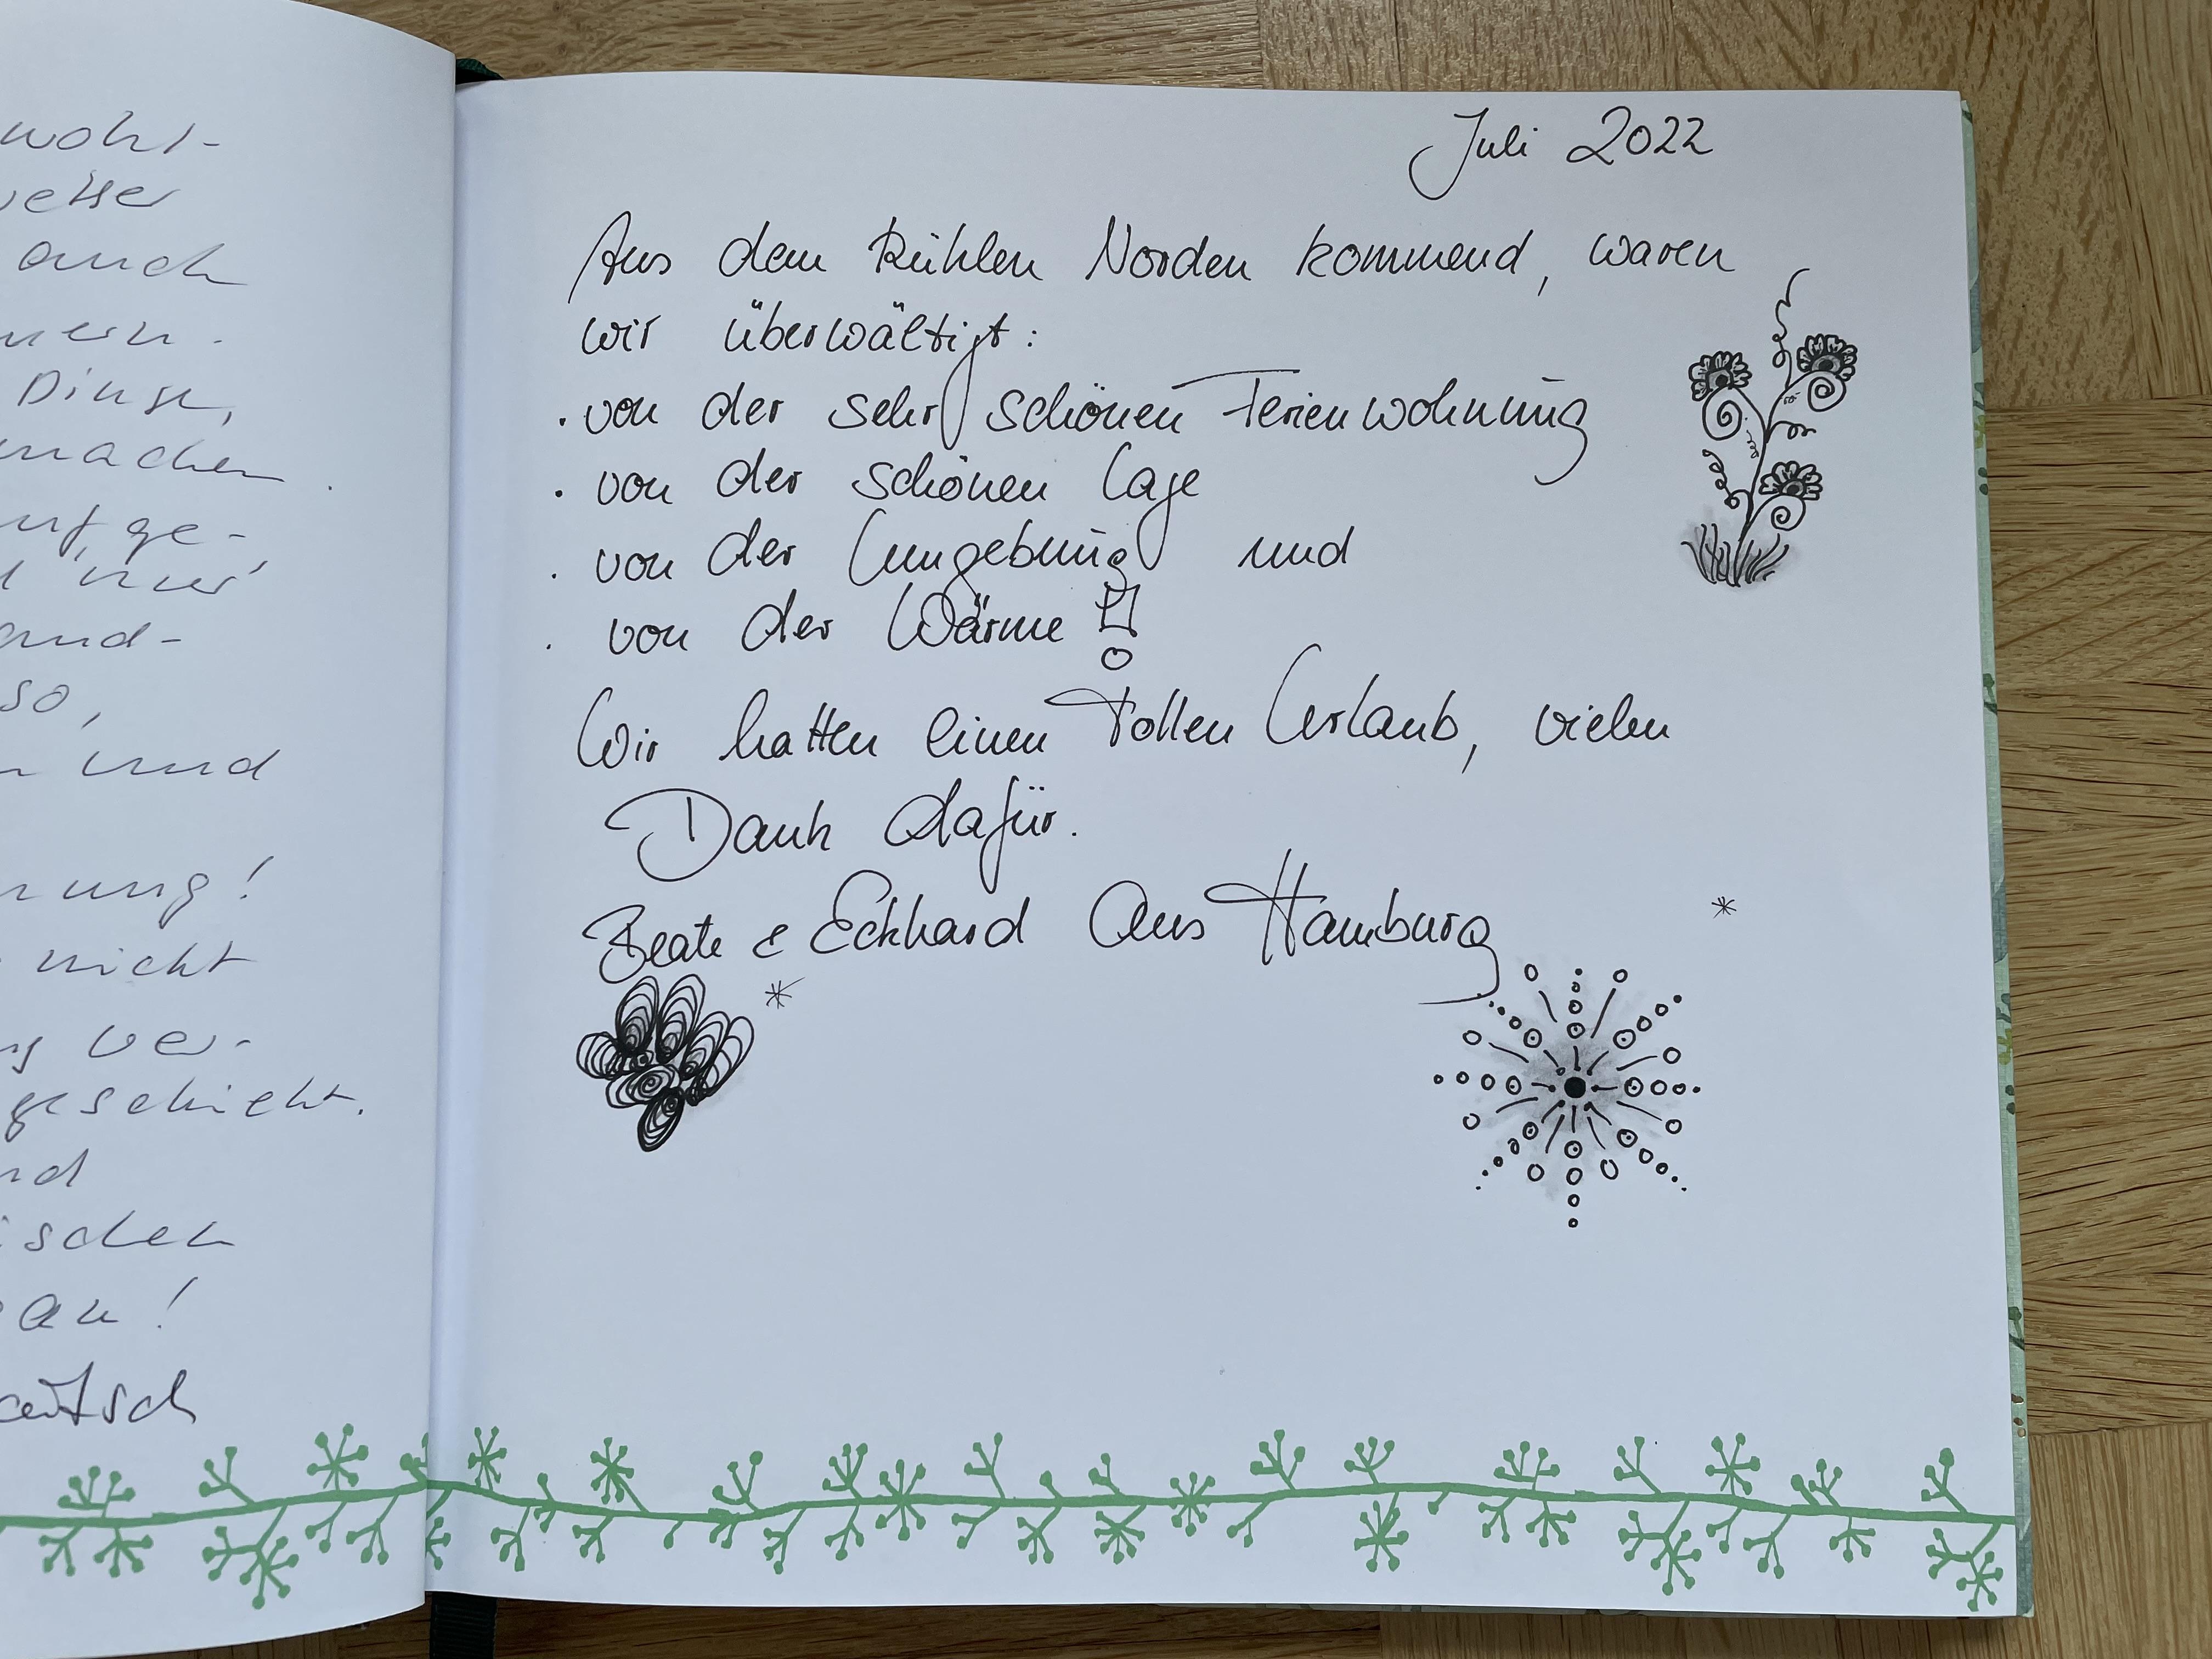 wohl-
auch
Dinge,
machen
ge-
nur
und
nung!
nicht
ver-
geschickt.
Juli 2022
Aus dem kühlen Norden kommend, waren
wir überwältigt:
· von der sehr schönen Ferienwohnung
· von der schönen Lage
· von der Umgebung und
· von der Wärme!
Wir hatten einen tollen Urlaub, vielen
Dank dafür.
Beate & Eckhard aus Hamburg